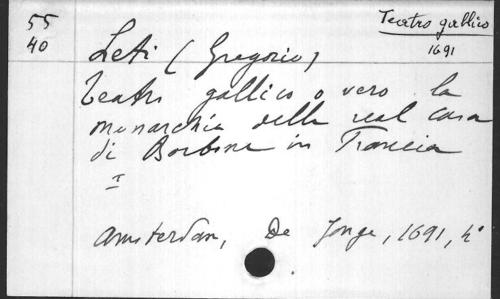 55
40
Teatro gallico
1691
Leti (Gregorio)
Teatro gallico o vero la
monarchia della real casa
di Borbone in Francia
I
Amsterdam, De Jonge, 1691, 4°